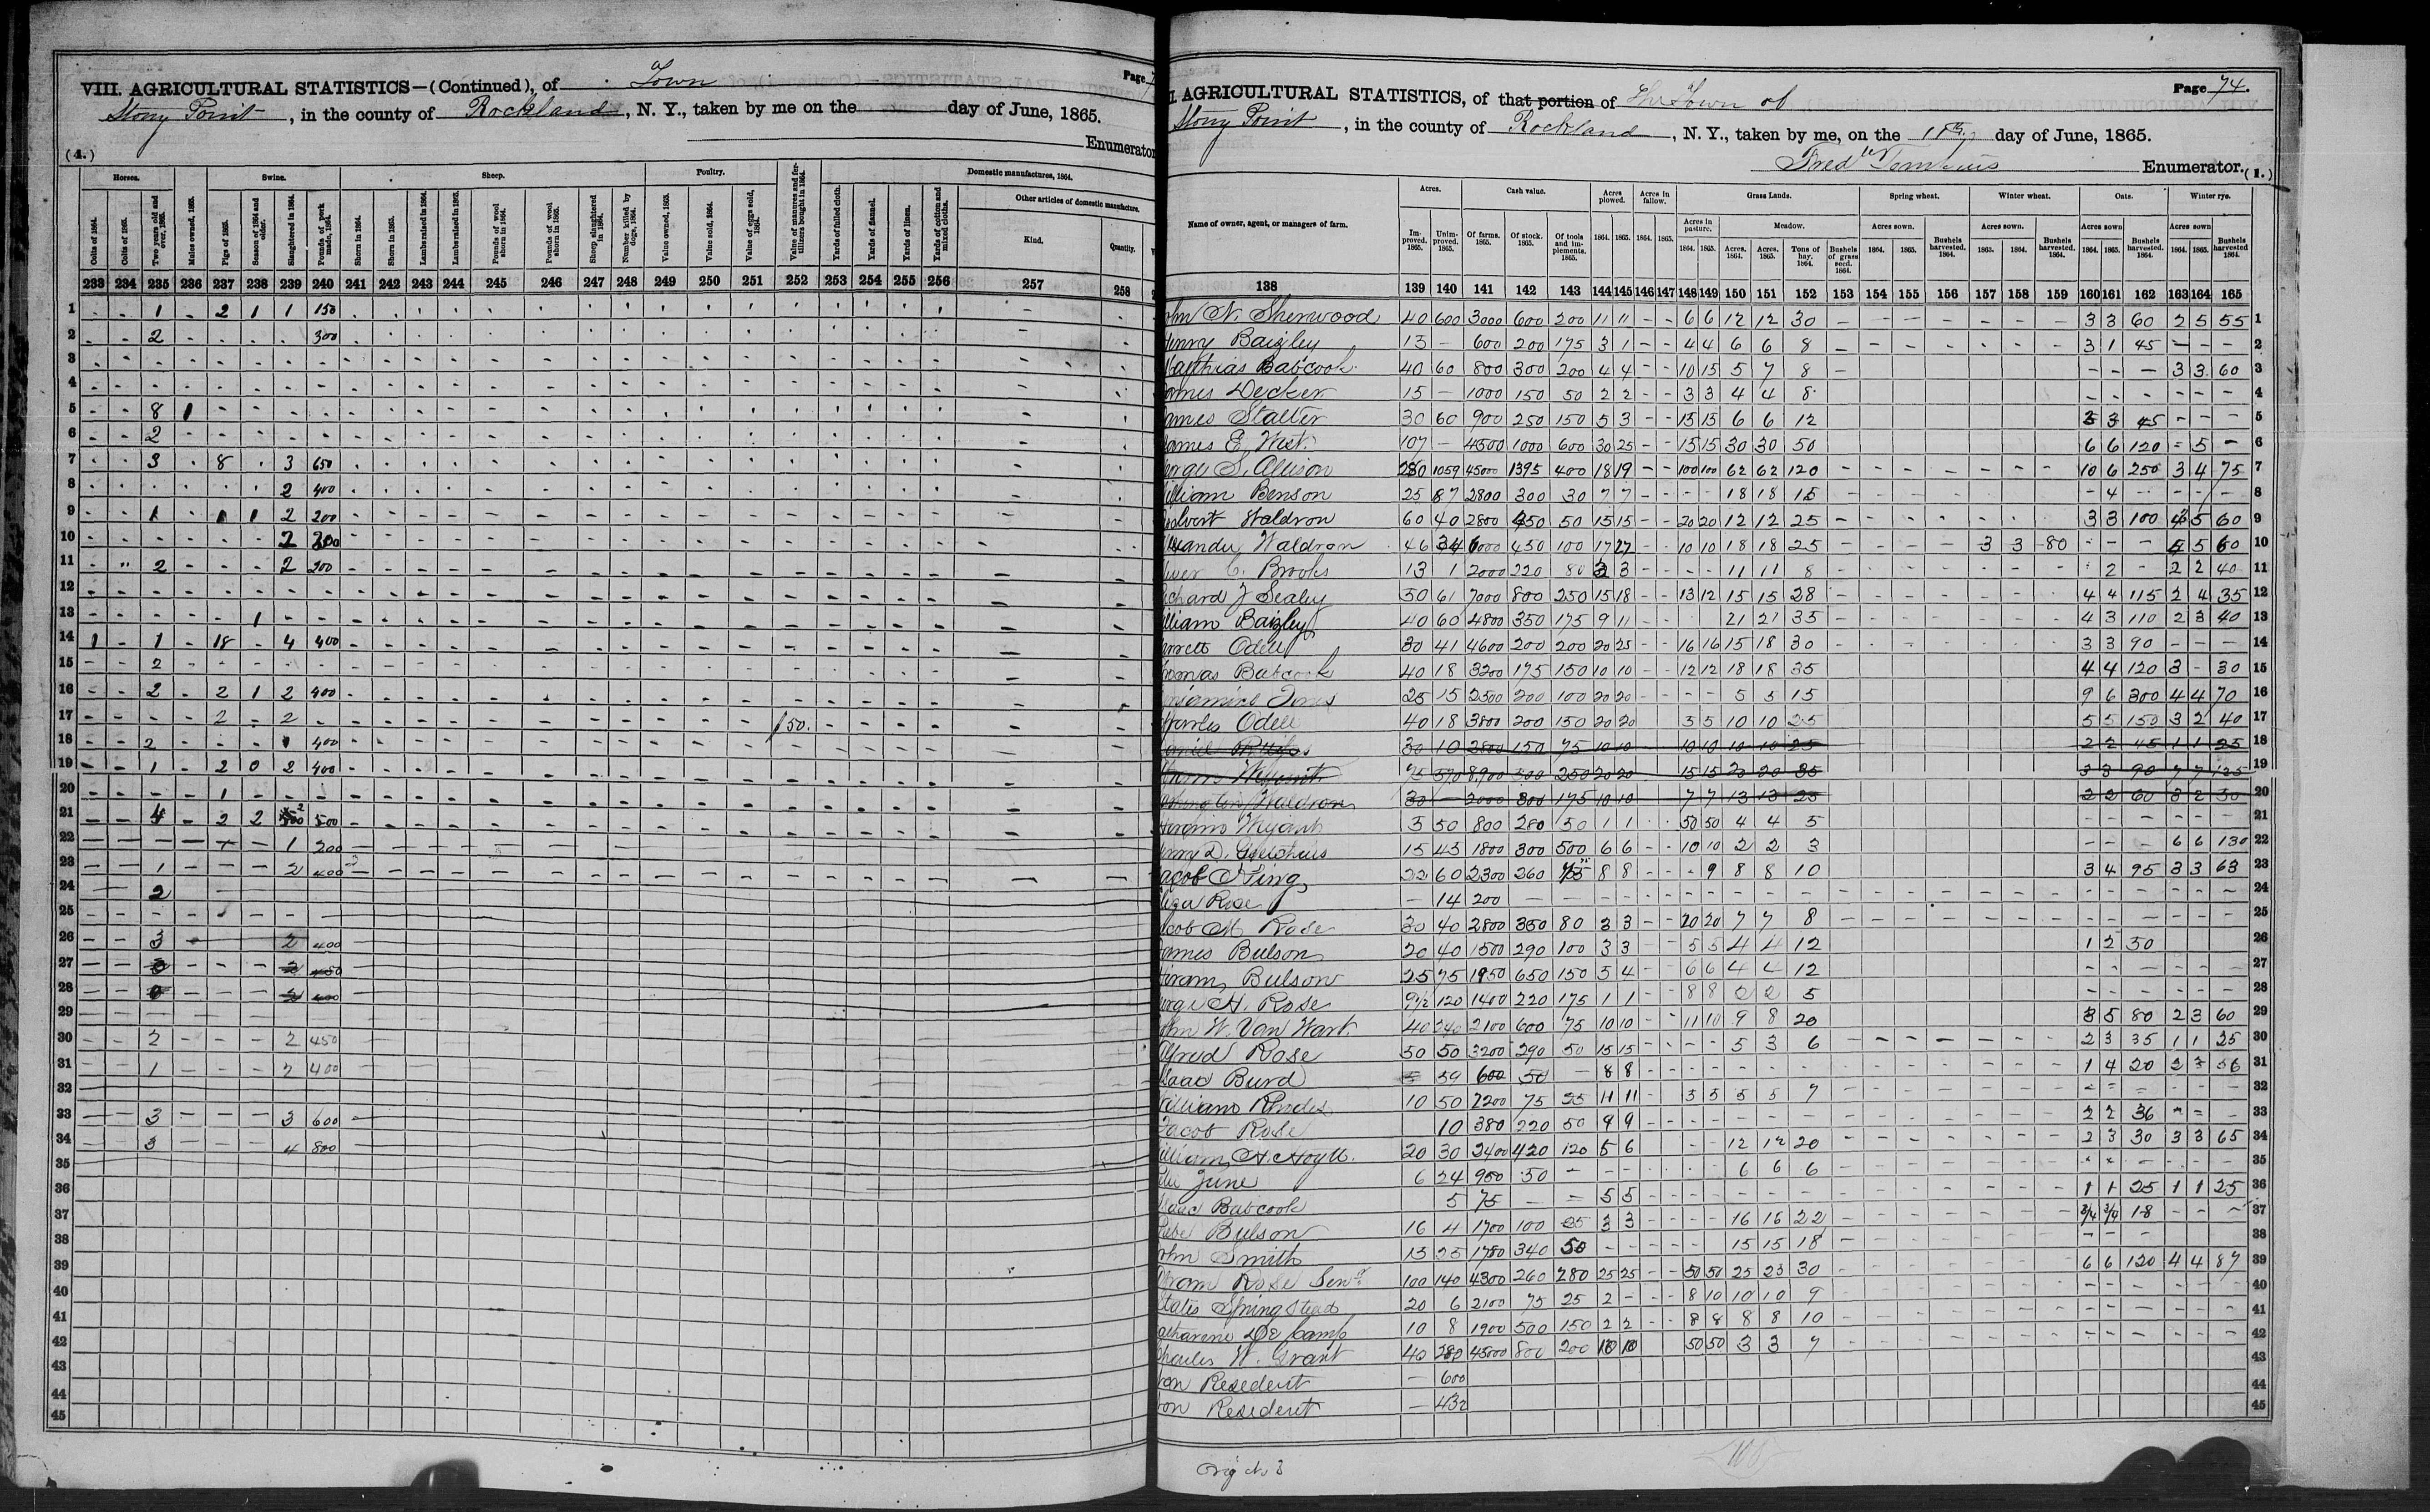 VIII. AGRICULTURAL STATISTICS—(Continued), of Town Page
Stony Point, in the county of Rockland, N. Y., taken by me on the day of June, 1865.
Enumerator
(4.)
Horses. Swine. Sheep. Poultry. Domestic manufactures, 1864.
Other articles of domestic manufacture.
Colts of 1864. Colts of 1865. Two years old and over, 1865. Mules owned, 1865. Pigs of 1865. Season of 1864 and older. Slaughtered in 1864. Pounds of pork made, 1864. Shorn in 1864. Shorn in 1865. Lambs raised in 1864. Lambs raised in 1865. Pounds of wool shorn in 1864. Pounds of wool shorn in 1865. Sheep slaughtered in 1864. Number killed by dogs, 1864. Value owned, 1865. Value sold, 1864. Value of eggs sold, 1864. Value of manures and fertilizers bought in 1864. Yards of fulled cloth. Yards of flannel. Yards of linen. Yards of cotton and mixed cloths. Kind. Quantity.
233 234 235 236 237 238 239 240 241 242 243 244 245 246 247 248 249 250 251 252 253 254 255 256 257 258
1 - - 1 - 2 1 1 150
2 - - 2 - - - - 300
3
4
5 - - 8 1
6 - - 2
7 - - 3 - 8 - 3 650
8 2 400
9 - - 1 - 1 1 2 200
10 2 200
11 2 - - - 2 200
12
13 1
14 1 - 1 - 18 - 4 400
15 - - 2
16 - - 2 - 2 1 2 400
17 - - - - 2 - 2 - 50.
18 - - 2 - - - 1 400
19 - - 1 - 2 0 2 400
20 - - - - 1
21 - - 4 - 2 2 2 500
22 1 200
23 1 - - - 2 400
24 2
25
26 - - 3 - 2 400
27
28
29
30 - - 2 - - - 2 450
31 1 - - - 2 400
32
33 - - 3 - - - 3 600
34 3 4 800
35
36
37
38
39
40
41
42
43
44
45
AGRICULTURAL STATISTICS, of that portion of The Town of Page 74.
Stony Point, in the county of Rockland, N. Y., taken by me, on the 18th day of June, 1865.
Enumerator. (1.)
Acres. Cash value. Acres plowed. Acres in fallow. Grass Lands. Spring wheat. Winter wheat. Oats. Winter rye.
Name of owner, agent, or managers of farm.
Improved. 1865. Unimproved. 1865. Of farms. 1865. Of stock. 1865. Of tools and implements. 1865. 1864. 1865. 1864. 1865. Acres in pasture. Meadow. Acres sown. Acres sown. Acres sown Acres sown
1864. 1865. Acres. 1864. Acres. 1865. Tons of hay. 1864. Bushels of grass seed. 1864. 1864. 1865. Bushels harvested. 1864. 1863. 1864. Bushels harvested. 1864. 1864. 1865. Bushels harvested. 1864. 1864. 1865. Bushels harvested 1864.
138 139 140 141 142 143 144 145 146 147 148 149 150 151 152 153 154 155 156 157 158 159 160 161 162 163 164 165
ohn N. Sherwood 40 600 3000 600 200 11 11 - - 6 6 12 12 30 - - - - - - - 3 3 60 2 5 55 1
enry Baizley 13 - 600 200 175 3 1 - - 4 4 6 6 8 - - - - - - - 3 1 45 - - - 2
atthias Babcock 40 60 800 300 200 4 4 - - 10 15 5 7 8 - - - - 3 3 60 3
ames Decker 15 - 1000 150 50 2 2 - - 3 3 4 4 8 4
ames Stalter 30 60 900 250 150 5 3 - - 15 15 6 6 12 3 3 45 - - - 5
ames E. West 107 - 4500 1000 600 30 25 - - 15 15 30 30 50 6 6 120 - 5 - 6
eorge S. Allison 280 1059 45000 1395 400 18 19 - - 100 100 62 62 120 10 6 250 3 4 75 7
illiam Benson 25 87 2800 300 30 7 7 - - - - 18 18 15 - 4 - - - - 8
Waldron 60 40 2800 450 50 15 15 - - 20 20 12 12 25 3 3 100 4 5 60 9
exander Waldron 46 34 6000 450 100 17 27 - - 10 10 18 18 25 3 3 80 - - - 4 5 60 10
liver C. Brooks 13 1 2000 220 80 3 3 - - - - 11 11 8 - 2 - 2 2 40 11
ichard J Sealey 50 61 7000 800 250 15 18 - - 13 12 15 15 28 4 4 115 2 4 35 12
illiam Baizley 40 60 4800 350 175 9 11 - - 21 21 35 4 3 110 2 3 40 13
arrett Odell 30 41 4600 200 200 20 25 - - 16 16 15 18 30 3 3 90 - - - 14
homas Babcock 40 18 3200 175 150 10 10 - - 12 12 18 18 35 4 4 120 3 - 30 15
enjamine Jones 25 15 2500 200 100 20 20 - - - - 5 5 15 9 6 300 4 4 70 16
harles Odell 40 18 3800 200 150 20 20 3 5 10 10 25 5 5 150 3 2 40 17
30 10 2800 150 75 10 10 10 10 10 10 25 2 2 45 1 1 25 18
75 570 8900 500 250 20 20 15 15 20 20 35 3 3 90 7 7 125 19
ashington Waldron 30 - 2000 300 175 10 10 7 7 13 13 25 2 2 60 3 2 30 20
Weyant 3 50 800 280 50 1 1 - - 50 50 4 4 5 21
enry D. 15 43 1800 300 500 6 6 - - 10 10 2 2 3 - - - 6 6 130 22
acob King 22 60 2300 260 75 8 8 - - - 9 8 8 10 3 4 95 3 3 63 23
liza Rose - 14 200 24
acob M Rose 30 40 2800 350 80 3 3 - - 20 20 7 7 8 25
ames Bulson 20 40 1500 290 100 3 3 - - 5 5 4 4 12 1 2 50 26
iram Bulson 25 75 1950 650 150 5 4 - - 6 6 4 4 12 27
eorge H. Rose 9½ 120 1400 220 175 1 1 - - 8 8 2 2 5 28
ohn W. Van Wart 40 240 2100 600 75 10 10 - - 11 10 9 8 20 3 5 80 2 3 60 29
lfred Rose 50 50 3200 290 50 15 15 - - - - 5 3 6 2 3 35 1 1 25 30
saac Burd 5 59 600 50 - 8 8 1 4 20 2 3 56 31
illiam Rhodes 10 50 2200 75 25 11 11 - 3 5 5 5 7 32
acob Rose 10 380 220 50 9 9 2 2 36 - - - 33
illiam H. Hoyt 20 30 2400 420 120 5 6 - - 12 12 20 2 3 30 3 3 65 34
June 6 24 950 50 6 6 6 35
saac Babcock 5 75 - - 5 5 1 1 25 1 1 25 36
hebe Bulson 16 4 1700 100 25 3 3 - - - - 16 16 22 3/4 3/4 18 - - - 37
ohn Smith 15 25 1750 340 50 15 15 18 38
bram Rose Senr 100 140 4300 260 280 25 25 - - 50 50 25 23 30 6 6 120 4 4 87 39
tates Springstead 20 6 2100 75 25 2 - - - 8 10 10 10 9 40
atharine De Camp 10 8 1900 500 150 2 2 - - 8 8 8 8 10 41
harles W. Grant 40 280 45000 800 200 10 10 50 50 3 3 7 42
on Resedent - 600 43
on Resident - 432 44
45
Orig No 3